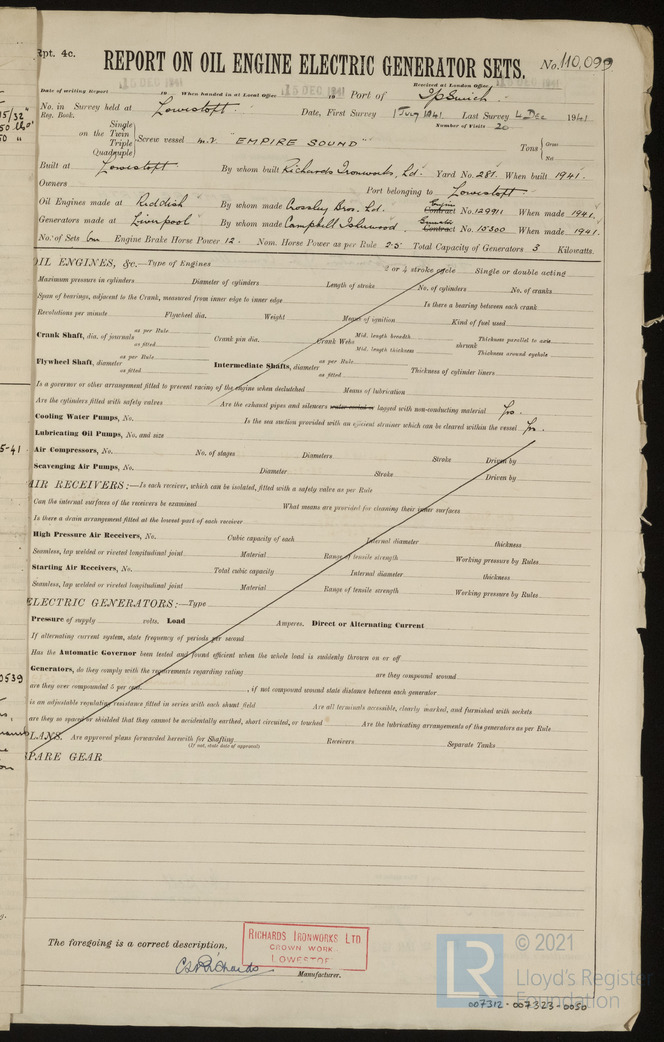 Rpt. 4c.
REPORT ON OIL ENGINE ELECTRIC GENERATOR SETS.
No. 110,099
Date of writing Report 15 DEC 1941 19 When handed in at Local Office 15 DEC 1941 19 Port of Ipswich
Received at London Office DEC 1941
No. in Reg. Book. Survey held at Lowestoft. Date, First Survey 1 July 1941 Last Survey 4 Dec 1941
Number of Visits 20
on the Single Twin Triple Quadruple Screw vessel m.v. "EMPIRE SOUND" Tons Gross Net
Built at Lowestoft By whom built Richards Ironworks, Ld. Yard No. 281. When built 1941.
Owners Port belonging to Lowestoft
Oil Engines made at Reddish By whom made Crossley Bros. Ld. Engine Contract No. 129911 When made 1941.
Generators made at Liverpool By whom made Campbell Isherwood. Contract No. 15300 When made 1941.
No. of Sets One Engine Brake Horse Power 12. Nom. Horse Power as per Rule 2.5 Total Capacity of Generators 3 Kilowatts.
OIL ENGINES, &c.—Type of Engines 2 or 4 stroke cycle Single or double acting
Maximum pressure in cylinders Diameter of cylinders Length of stroke No. of cylinders No. of cranks
Span of bearings, adjacent to the Crank, measured from inner edge to inner edge Is there a bearing between each crank
Revolutions per minute Flywheel dia. Weight Means of ignition Kind of fuel used
Crank Shaft, dia. of journals as per Rule as fitted Crank pin dia. Crank Webs Mid. length breadth Mid. length thickness shrunk Thickness parallel to axis Thickness around eyehole
Flywheel Shaft, diameter as per Rule as fitted Intermediate Shafts, diameter as per Rule as fitted Thickness of cylinder liners
Is a governor or other arrangement fitted to prevent racing of the engine when declutched Means of lubrication
Are the cylinders fitted with safety valves Are the exhaust pipes and silencers water cooled or lagged with non-conducting material Yes.
Cooling Water Pumps, No. Is the sea suction provided with an efficient strainer which can be cleared within the vessel Yes.
Lubricating Oil Pumps, No. and size
Air Compressors, No. No. of stages Diameters Stroke Driven by
Scavenging Air Pumps, No. Diameter Stroke Driven by
AIR RECEIVERS:—Is each receiver, which can be isolated, fitted with a safety valve as per Rule
Can the internal surfaces of the receivers be examined What means are provided for cleaning their inner surfaces
Is there a drain arrangement fitted at the lowest part of each receiver
High Pressure Air Receivers, No. Cubic capacity of each Internal diameter thickness
Seamless, lap welded or riveted longitudinal joint Material Range of tensile strength Working pressure by Rules
Starting Air Receivers, No. Total cubic capacity Internal diameter thickness
Seamless, lap welded or riveted longitudinal joint Material Range of tensile strength Working pressure by Rules
ELECTRIC GENERATORS:—Type
Pressure of supply volts. Load Amperes. Direct or Alternating Current
If alternating current system, state frequency of periods per second
Has the Automatic Governor been tested and found efficient when the whole load is suddenly thrown on or off
Generators, do they comply with the requirements regarding rating are they compound wound
are they over compounded 5 per cent. , if not compound wound state distance between each generator
is an adjustable regulating resistance fitted in series with each shunt field Are all terminals accessible, clearly marked, and furnished with sockets
are they so spaced or shielded that they cannot be accidentally earthed, short circuited, or touched Are the lubricating arrangements of the generators as per Rule
PLANS. Are approved plans forwarded herewith for Shafting Receivers Separate Tanks
(If not, state date of approval)
SPARE GEAR
The foregoing is a correct description,
RICHARDS IRONWORKS LTD
CROWN WORK
LOWESTOF
Manufacturer.
LR
© 2021
Lloyd's Register
Foundation
007312-007323-0050